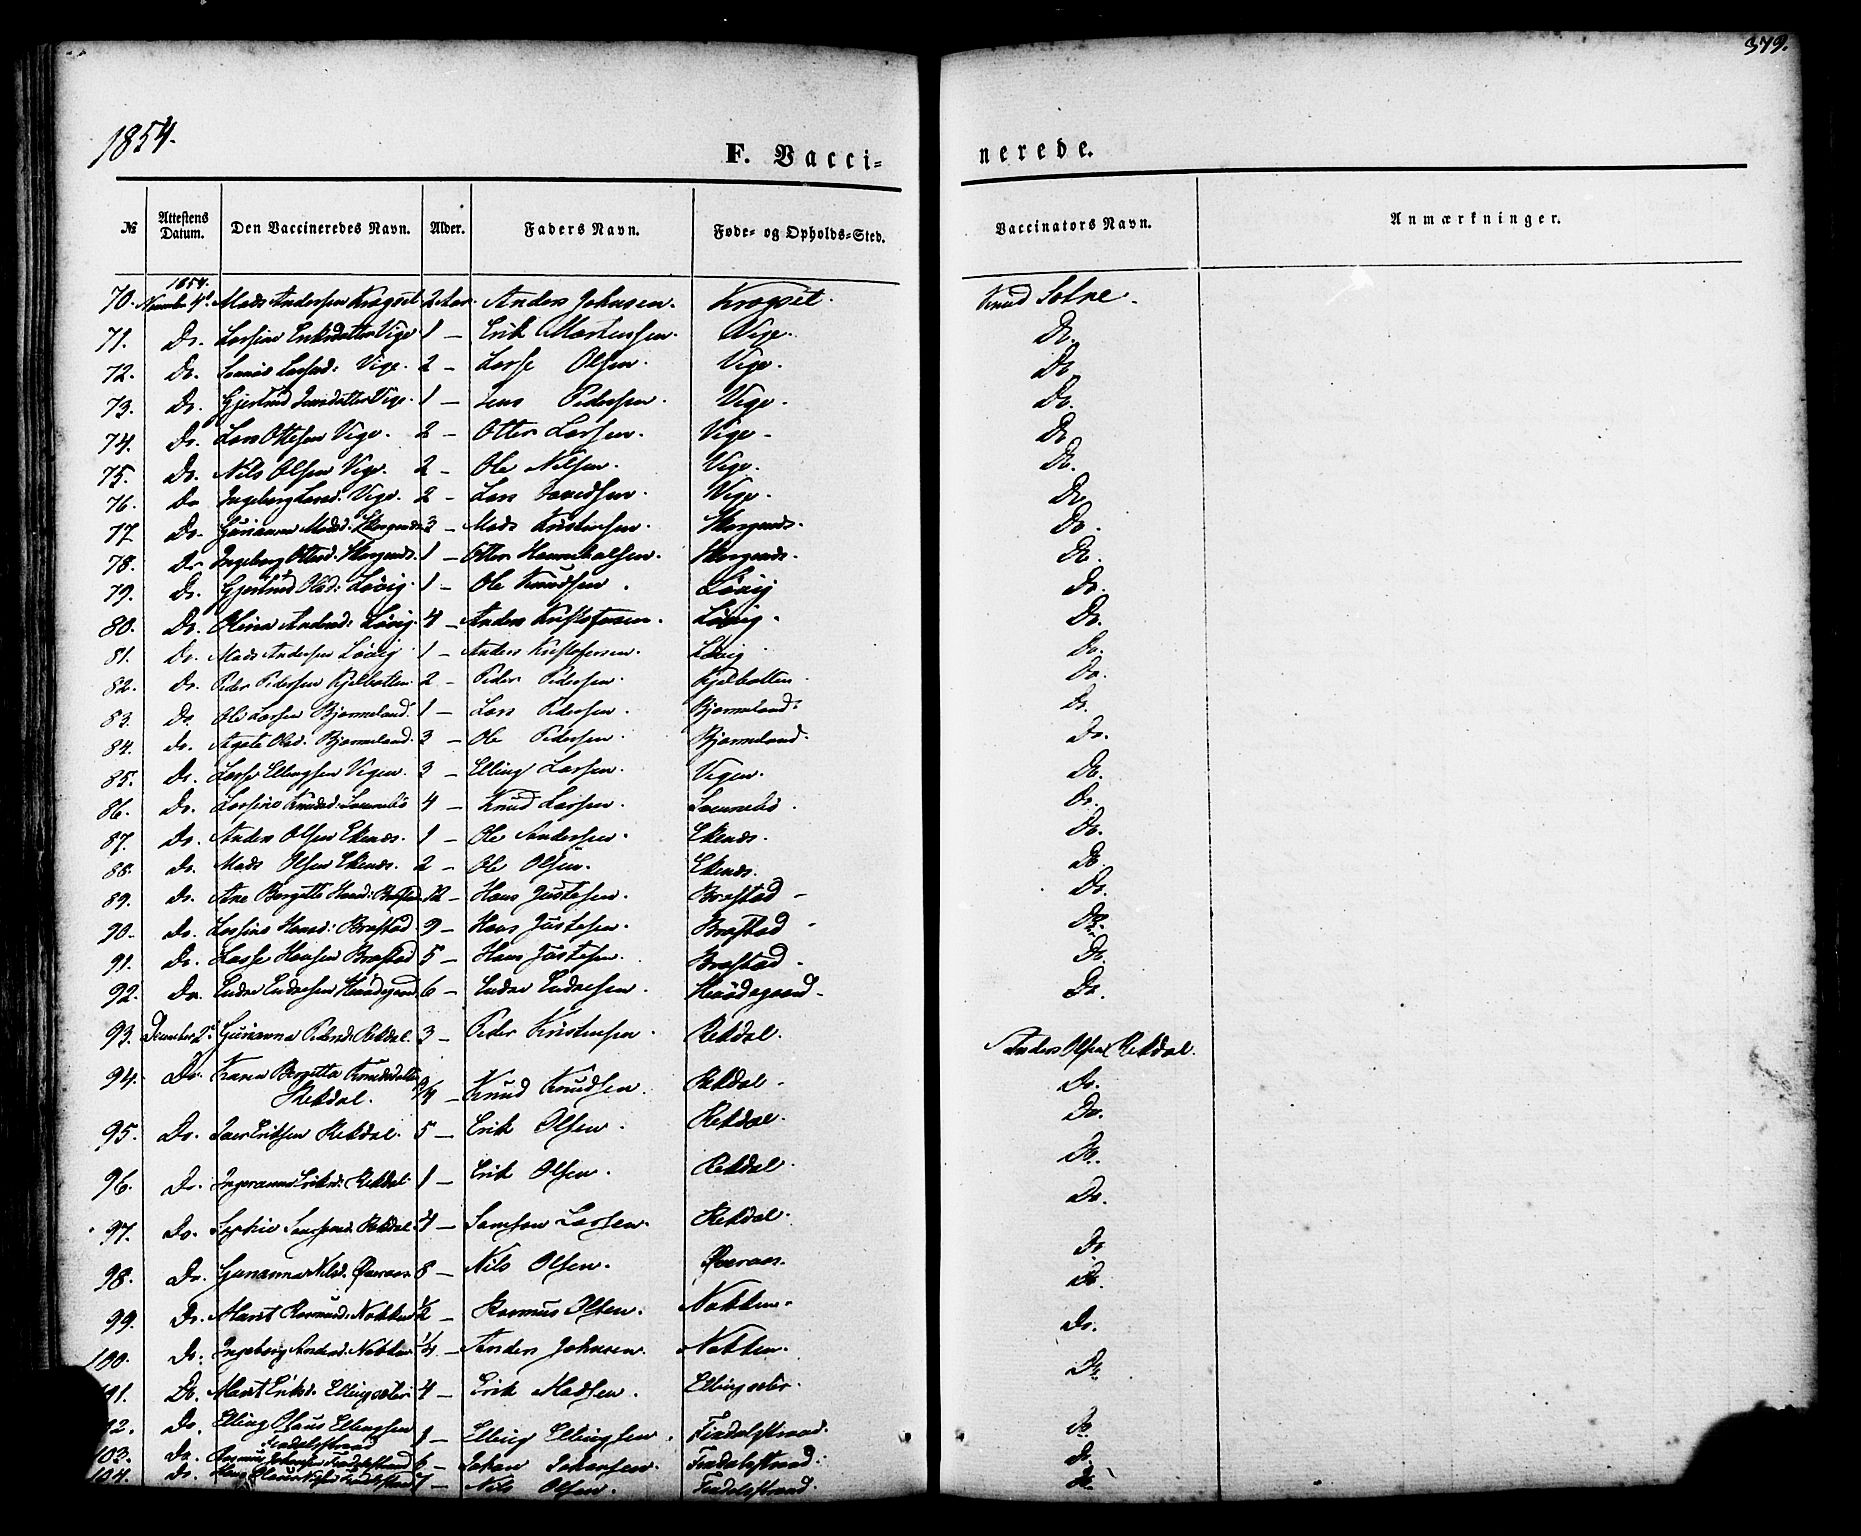 373.
1854.
F. Vacci-
nerede.
№ Attestens Datum. Den Vaccineredes Navn. Alder. Faders Navn. Føde- og Opholds-Sted. Vaccinators Navn. Anmærkninger.
1854.
70. November 4d Mads Andersen Krogset 2 Aar Anders Johnsen. Krogset. Knud Solne.
71. Do. Lassine Eriksdatter Vige 1 — Erik Mortensen. Vige. Do.
72. Do. Larsd: Vige. 2 — Lasse Olsen. Vige. Do.
73. Do. Gjertrud Jensdatter Vige. 1 — Jens Pedersen. Vige. Do.
74. Do. Lars Ottesen Vige. 2 — Otter Larsen. Vige — Do.
75. Do. Nils Olsen Vige. 2 — Ole Nilsen. Vige. Do.
76. Do Ingeborg Larsd: Vige. 2 — Lars Vige. Do
77. Do. Gurianna Madsd. 3 — Mads Kristensen. Do.
78. Do Ingeborg Ottersd. 1 — Otter Do.
79. Do. Gjertrud Olsd: Løvig. 1 — Ole Knudsen. Løvig Do.
80. Do. Olina Andersd: Løvig. 4 — Anders Kristofersen. Løvig. Do.
81. Do. Mads Andersen Løvig 1 — Anders Kristofersen. Løvig Do.
82. Do. Peder Pedersen Kjelbotten 2 — Peder Pedersen. Kjelbotten. Do.
83. Do. Ole Larsen Bjermeland. 1 — Lars Pedersen. Bjermeland. Do.
84. do. Agate Olsd. Bjermeland. 3 — Ole Pedersen. Bjermeland. Do.
85. Do. Lasse Ellingsen Vigen. 3 — Elling Larsen. Vigen. Do.
86. Do. Lassine Knudsd: 4 — Knud Larsen. Do.
87. Do. Anders Olsen Ekenes. 1 — Ole Andersen. Ekenes. Do.
88. Do. Mads Olsen Ekenes. 2 — Ole Olsen. Ekenes. Do
89. Do. Ane Bergitte Hansd: Brastad 12 — Hans Justesen. Brastad — Do.
90. Do. Lassine Hansd: Brastad 9 — Hans Justesen. Brastad Do.
91. Do. Lasse Hansen Brastad 5 — Hans Justesen. Brastad — Do.
92. Do. Endre Endresen 6 — Endre Endresen. Do.
93. December 2d Gurianna Pedersd: Rekdal. 3 — Peder Kristensen. Rekdal. Anders Olsen Rekdal.
94. Do. Karen Bergitta Knudsdatter
Rekdal. 3/4 — Knud Knudsen. Rekdal — Do.
95. Do. Eriksen Rekdal. 5 — Erik Olsen. Rekdal. Do.
96. Do. Ingeranna Eriksd: Rekdal. 1 — Erik Olsen. Rekdal. Do.
97. Do. Samsonsd. Rekdal. 4 — Samson Larsen. Rekdal. Do.
98. Do. Gurianna Nilsd. Øveraas. 8 — Nils Olsen. Øveraas. Do
99. Do. Marit Rasmusd: Nakken 1/2 — Rasmus Olsen. Nakken. Do.
100. Do. Ingeborg Andersd: Nakken 1/4 — Anders Johnsen. Nakken. Do.
Do. Marit Eriksd: 4 — Erik Madsen. Do.
Do. Elling Olaus Ellingsen
Findalsstrand 1 — Elling Ellingsen. Findalsstrand. Do
103. Do. Johansen Findalsstrand 6 — Johan Johansen. Findalsstrand. Do.
104. Do. 7 — Nils Olsen. Findalsstrand. Do.